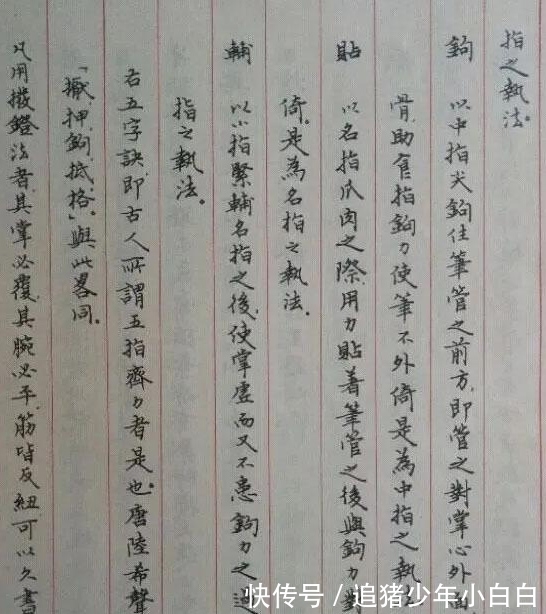 指之執法。
鉤 以中指尖鉤住筆管之前方，即管之對掌心外
骨，助食指鉤力使筆不外倚是為中指之執法
貼 以名指爪肉之際，用力貼着筆管之後與鉤力
倚。是為名指之執法。
輔 以小指緊輔名指之後，使掌虛而又不患鉤力之過
指之執法。
右五字訣，即古人所謂五指齊力者是也。唐陸希聲
「擫、押、鉤、抵、格」。與此畧同。
凡用撥鐙法者，其掌必覆，其腕必平，筋皆反紐，可以久書
快传号 / 追猪少年小白白